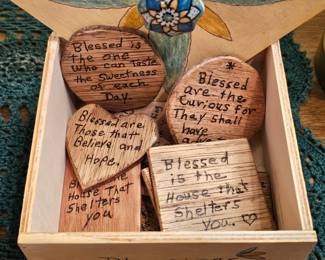 Blessed is
the one
who can taste
the Sweetness
of each
Day.
*
Blessed
are the
Curious for
They shall
have
Blessed are
Those that
Believe and
Hope.
Blessed
is the
House that
Shelters
you.
be the
House That
Shelters
you